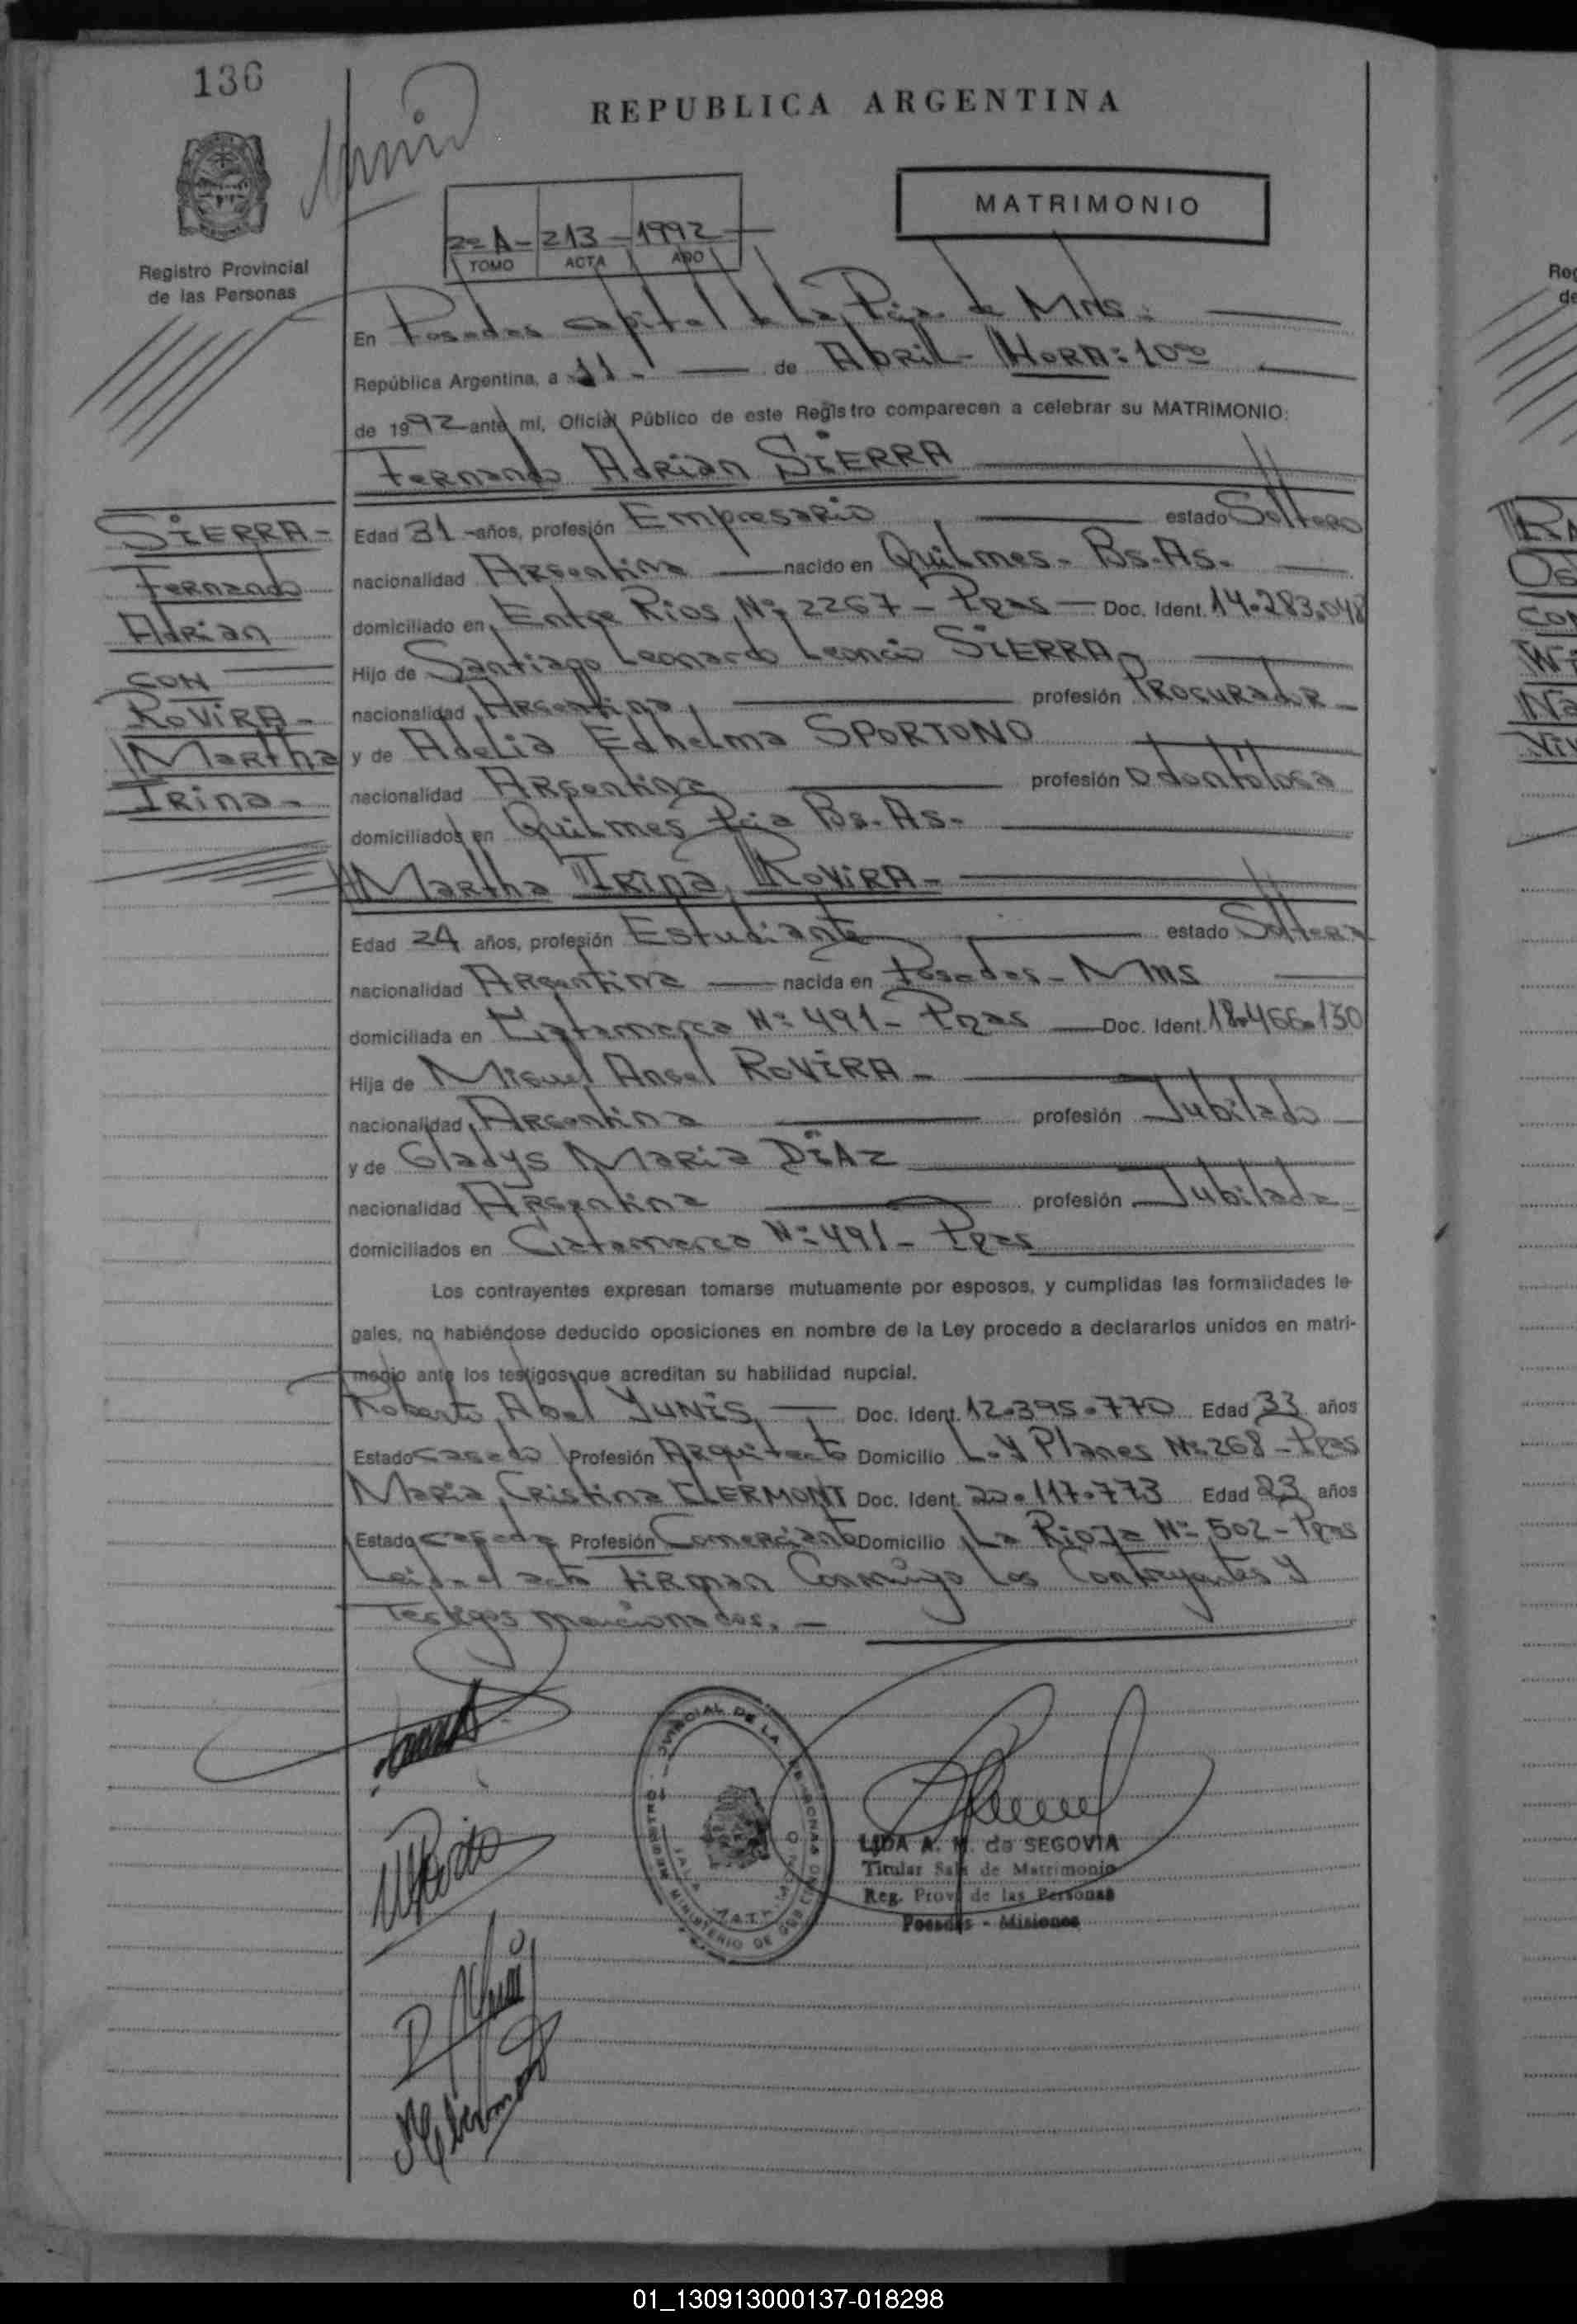 136
REPUBLICA ARGENTINA
MATRIMONIO
2º A - 213 - 1992
TOMO ACTA AÑO
Registro Provincial
de las Personas
En Posadas capital de La Pcia. de Mns.
República Argentina, a 11 - de Abril - HORA: 10 00
de 1992 ante mí, Oficial Público de este Registro comparecen a celebrar su MATRIMONIO:
Fernando Adrian SIERRA
SIERRA -
Fernando
Adrian
CON
ROVIRA -
Martha
Irina -
Edad 31 - años, profesión Empresario estado Soltero
nacionalidad Argentina nacido en Quilmes - Bs. As.
domiciliado en Entre Rios Nº 2267 - Pdas - Doc. Ident. 14.283.048
Hijo de Santiago Leonardo Leoncio SIERRA
nacionalidad Argentina profesión Procurador -
y de Adelia Edhelma SPORTONO
nacionalidad Argentina profesión Odontóloga
domiciliados en Quilmes Pcia Bs. As.
Martha Irina ROVIRA -
Edad 24 años, profesión Estudiante estado Soltera
nacionalidad Argentina nacida en Posadas - Mns
domiciliada en Catamarca Nº 491 - Pdas Doc. Ident. 18.466.130
Hija de Miguel Angel ROVIRA -
nacionalidad Argentina profesión Jubilado
y de Gladys Maria DIAZ
nacionalidad Argentina profesión Jubilada
domiciliados en Catamarca Nº 491 - Pdas
Los contrayentes expresan tomarse mutuamente por esposos, y cumplidas las formalidades le-
gales, no habiéndose deducido oposiciones en nombre de la Ley procedo a declararlos unidos en matri-
monio ante los testigos que acreditan su habilidad nupcial.
Roberto Abel YUNIS Doc. Ident. 12.395.770 Edad 33 años
Estado casado Profesión Arquitecto Domicilio L. y Planes Nº 268 - Pdas
Maria Cristina CLERMONT Doc. Ident. 20.117.773 Edad 23 años
Estado casada Profesión Comerciante Domicilio La Rioja Nº 502 - Pdas
Leida el acta firman Conmigo Los Contrayentes y
Testigos mencionados. -
LIDA A. M. de SEGOVIA
Titular Sala de Matrimonio
Reg. Prov. de las Personas
Posadas - Misiones
01_130913000137-018298